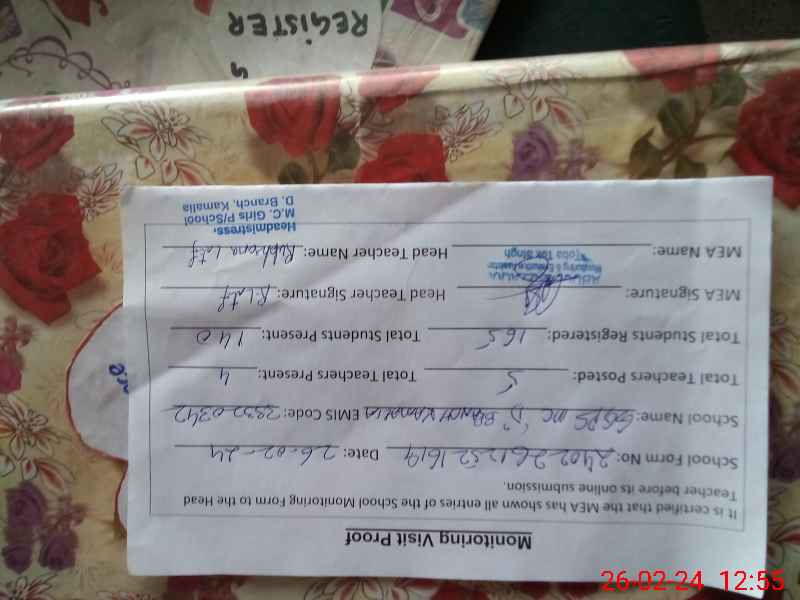 Monitoring Visit Proof
It is certified that the MEA has shown all entries of the School Monitoring Form to the Head
Teacher before its online submission.
School Form No: 2402261252 1619 Date: 26-02-24
School Name: GGPS MC "D" BRANCH KAMALIA EMIS Code: 33320342
Total Teachers Posted: 5 Total Teachers Present: 4
Total Students Registered: 165 Total Students Present: 140
MEA Signature: Head Teacher Signature: R Latif
MEA Name: Head Teacher Name: Rukhsana Latif
Monitoring & Evaluation Assistant
Toba Tek Singh
Headmistress.
M.C. Girls P/School
D. Branch, Kamalia
REGISTER
26-02-24 12:55